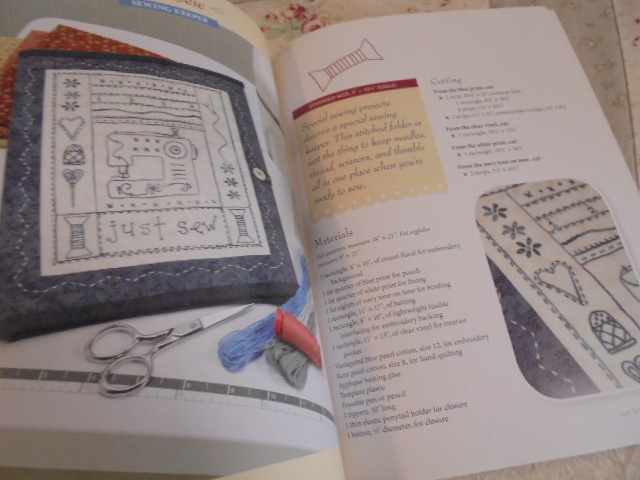 Sew
SEWING KEEPER
just sew
Special sewing projects
deserve a special sewing
keeper. This stitched folder is
just the thing to keep needles,
thread, scissors, and thimble
all in one place when you're
ready to sew.
Materials
Fat quarters measure 18" x 21". Fat eighths
measure 9" x 21".
1 rectangle, 8" x 10", of cream floral for embroidery
background
1 fat quarter of blue print for pouch
1 fat quarter of white print for lining
1 fat eighth of navy tone on tone for binding
1 rectangle, 11" x 17", of batting
1 rectangle, 8" x 10", of lightweight fusible
interfacing for embroidery backing
1 rectangle, 11" x 15", of clear vinyl for interior
pocket
Variegated blue pearl cotton, size 12, for embroidery
Ecru pearl cotton, size 8, for hand quilting
Appliqué basting glue
Template plastic
Erasable pen or pencil
2 zippers, 10" long
1 thin elastic ponytail holder for closure
1 button, diameter, for closure
Cutting
From the blue print, cut:
From the clear vinyl, cut:
From the white print, cut:
From the navy tone on tone, cut: